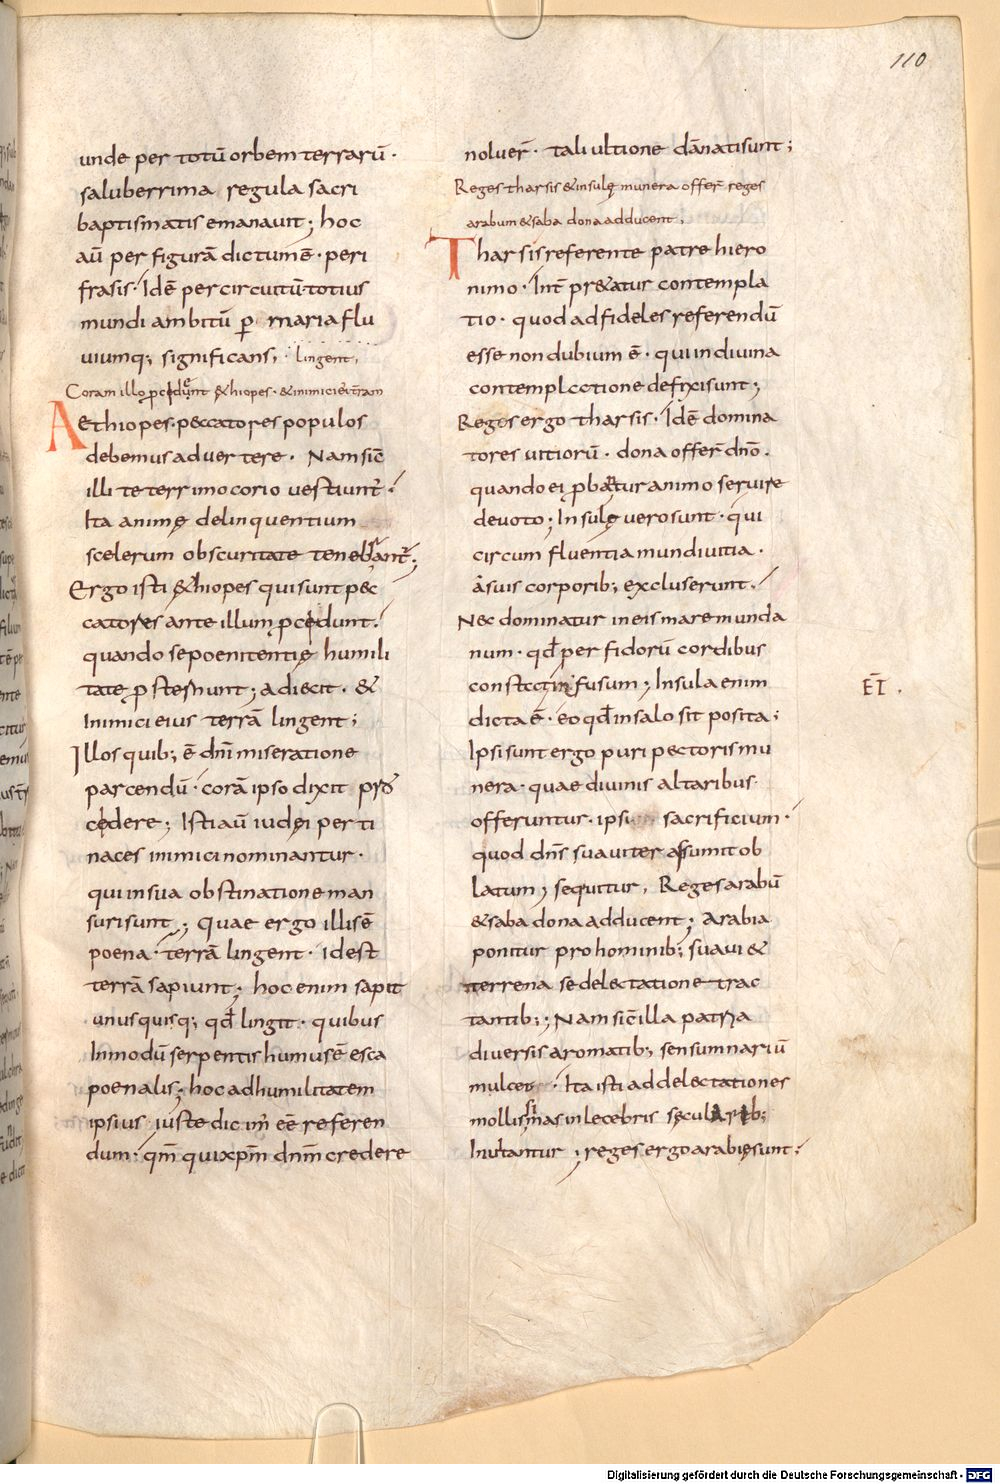 110
unde per totū orbem terrarū·
saluberrima regula sacri
baptismatis emanauit; hoc
aū per figurā dictum ē· peri
frasis· Idē per circuitū· totius
mundi ambitū ꝑ maria flu
uiumq; significans, · lingent,
Coram illo ꝓcedunt &hiopes· & inimici ei trām
Aethiopes· peccatores populos
debemus aduertere· Nam sic̄
illi teterrimo corio uestiunt̄·
Ita animę delinquentium
scelerum obscuritate tenebrant̄;
Ergo isti &hiopes qui sunt pec
catores ante illum ꝓcedunt·
quando se poenitentię humili
tate ꝓsternunt; adiecit· &
Inimici eius terrā lingent;
Illos quib; ē dn̄i miseratione
parcendū· corā ipso dixit pro
cedere; Isti aū iudęi perti
naces inimici nominantur·
qui in sua obstinatione man
suri sunt; quae ergo illis ē
poena· terrā lingent· idest
terrā sapiunt; hoc enim sapit
unusquisq; qđ lingit· quibus
In modū serpentis humus ē esca
poenalis; hoc ad humilitatem
ipsius iuste dicim̄ eē referen
dum· qm̄ qui xp̄m dn̄m credere
noluer̄· tali ultione dānati sunt;
Reges tharsis & insulę munera offer̄ reges
arabum & saba dona adducent,
Tharsis referente patre hiero
nimo· Int̄ pr&atur contempla
tio· quod ad fideles referendū
esse non dubium ē· qui in diuina
contemplatione defixi sunt;
Reges ergo tharsis· Idē domina
tores uitiorū· dona offer̄ dn̄o·
quando ei ꝓbatur animo seruire
deuoto; Insulę uero sunt· qui
circum fluentia mundi uitia·
a suis corporib; excluserunt·
Nec dominatur in eis mare munda
num· qđ per fidorū cordibus
constat infusum; Insula enim
dicta ē· eo qđ in salo sit posita;
Ipsi sunt ergo puri pectoris mu
nera· quae diuinis altaribus·
offeruntur· sacrificium·
quod dn̄s suauiter assumit ob
latum; sequitur, Reges arabū
& saba dona adducent; Arabia
ponitur pro hominib; suaui &
terrena se delectatione trac
tantib;; Nam sic̄ illa patria
diuersis aromatib; sensum nariū
mulcet· Ita isti ad delectationes
mollissimas inlecebris sęcularib;
Inuitantur; reges ergo arabię sunt·
EI·
Digitalisierung gefördert durch die Deutsche Forschungsgemeinschaft - DFG